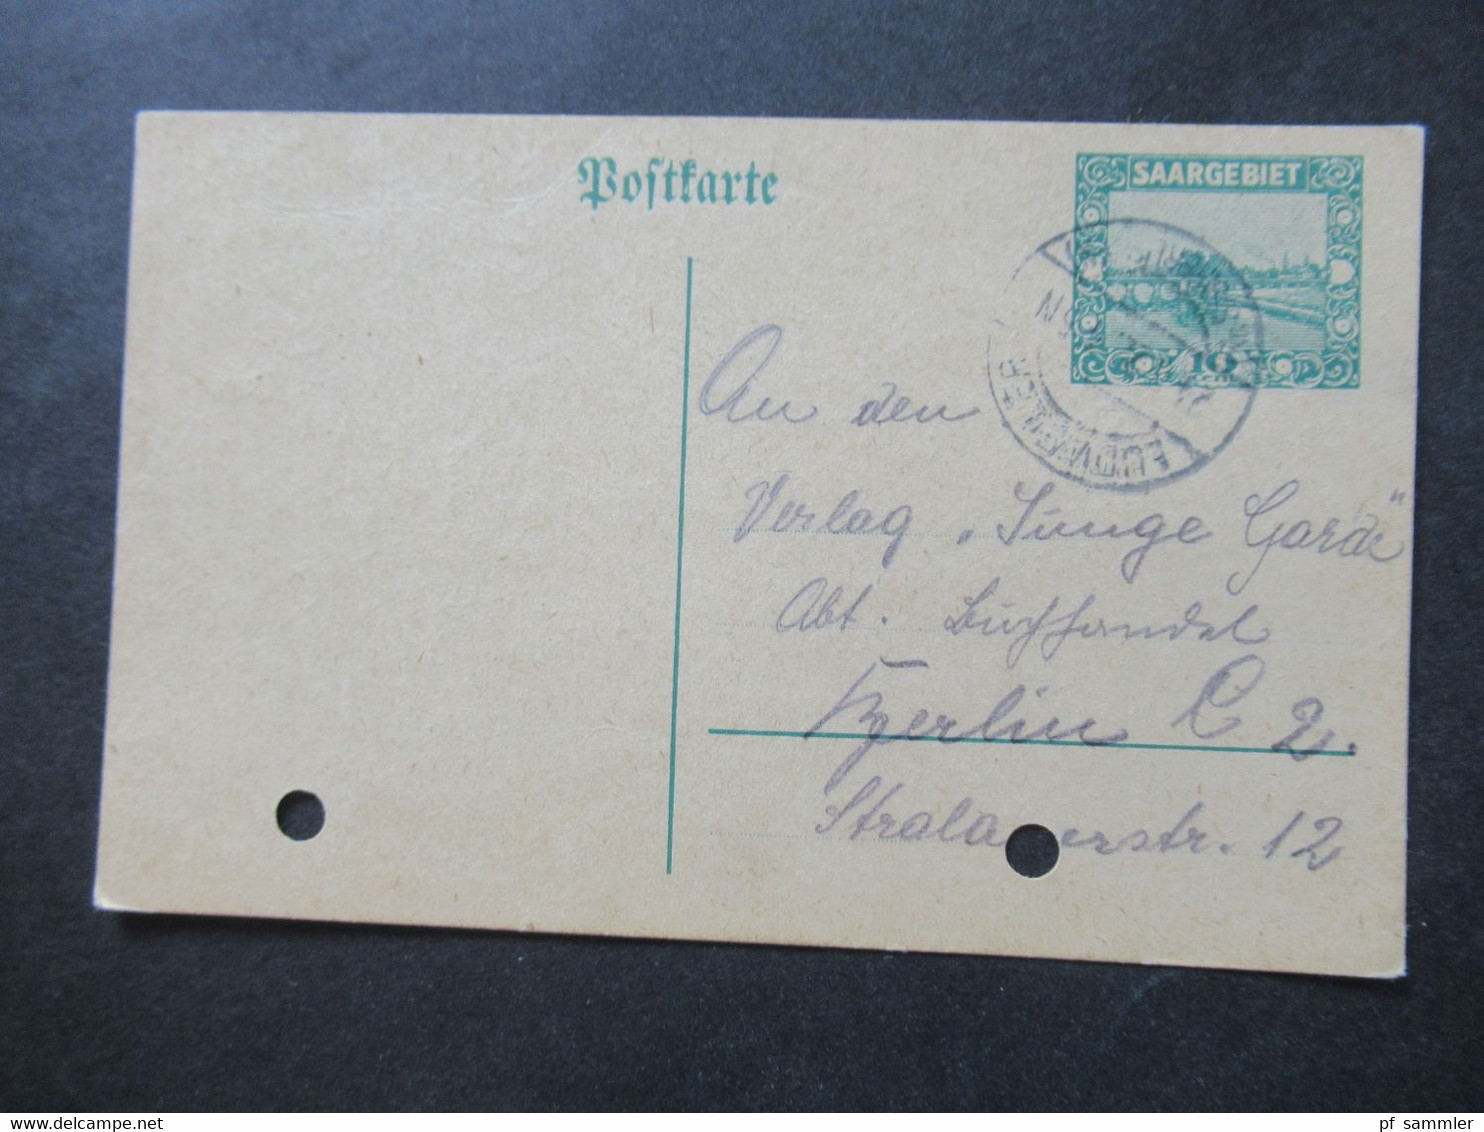 Postkarte
SAARGEBIET
10
An den
Verlag „Junge Garde“
Abt. Buchhandel
Berlin C 2.
Strala erstr. 12
pf sammler